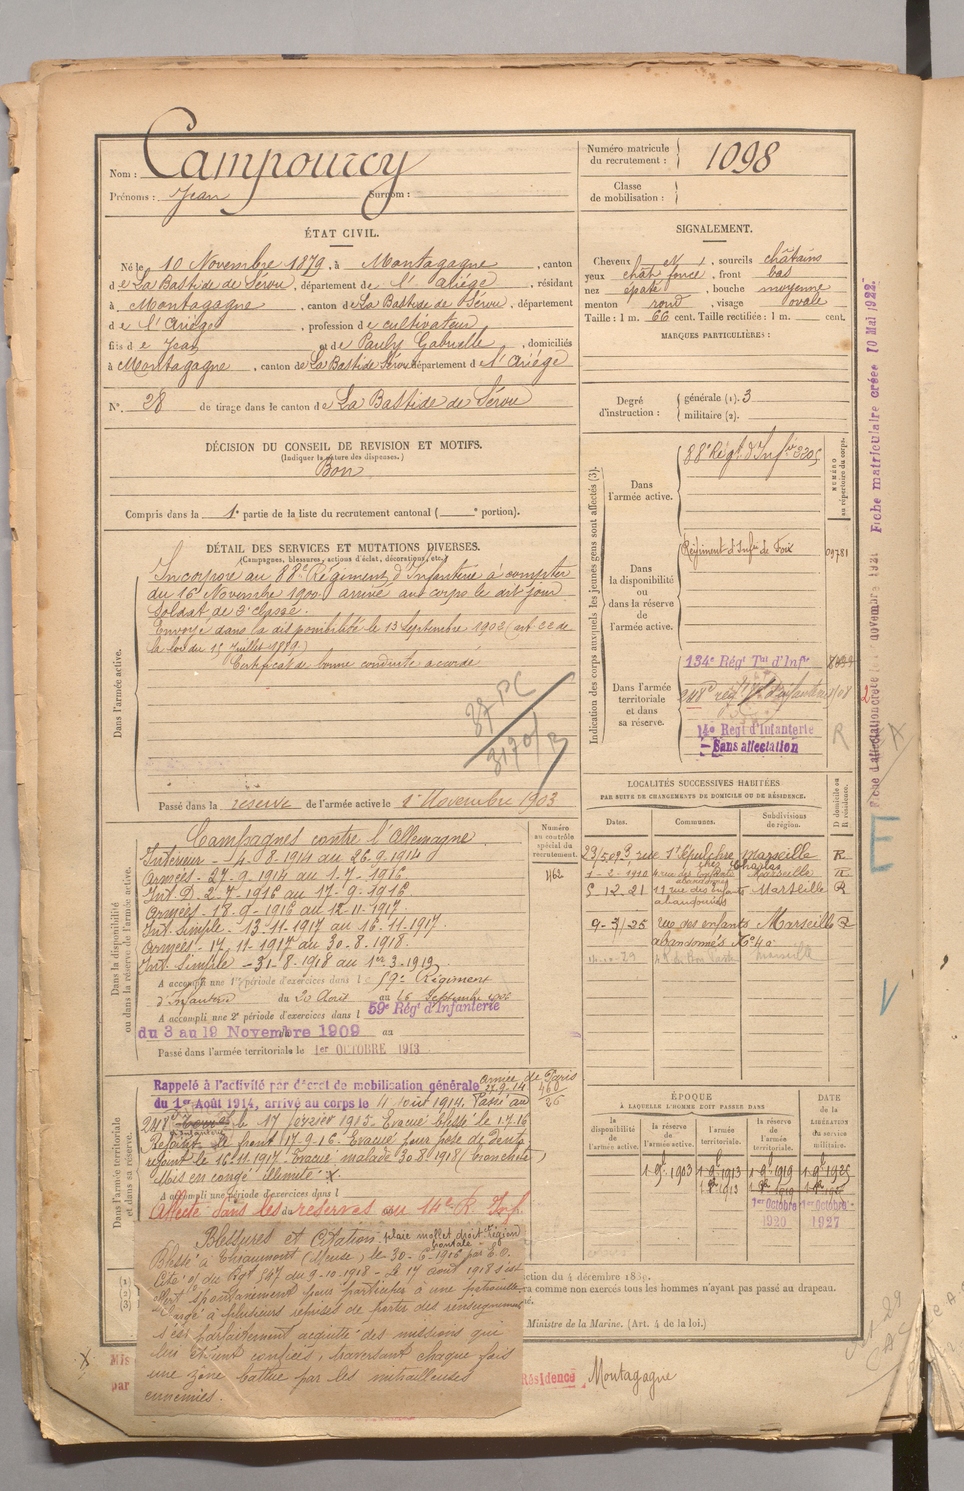 Nom : Campourcy
Prénoms : Jean Surnom :
Numéro matricule du recrutement : 1098
Classe de mobilisation :
ÉTAT CIVIL.
Né le 10 Novembre 1879, à Montagagne, canton
de La Bastide de Sérou, département de l'Ariège, résidant
à Montagagne, canton de La Bastide de Sérou, département
de l'Ariège, profession de cultivateur
fils de Jean et de Pauly Gabrielle, domiciliés
à Montagagne, canton de La Bastide Sérou département de l'Ariége
N° 28 de tirage dans le canton de La Bastide de Sérou
SIGNALEMENT.
Cheveux, sourcils châtains
yeux chât foncé, front bas
nez épaté, bouche moyenne
menton rond, visage ovale
Taille : 1 m. 66 cent. Taille rectifiée : 1 m. cent.
MARQUES PARTICULIÈRES :
Degré d'instruction : générale (1). 3
militaire (2).
DÉCISION DU CONSEIL DE REVISION ET MOTIFS.
(Indiquer la nature des dispenses.)
Bon
Compris dans la 1e partie de la liste du recrutement cantonal ( portion).
DÉTAIL DES SERVICES ET MUTATIONS DIVERSES.
(Campagnes, blessures, actions d'éclat, décorations, etc.)
Dans l'armée active.
Incorporé au 88e Régiment d'Infanterie à compter
du 16 Novembre 1900 arrivé au corps le dit jour
Soldat de 2e classe.
Envoyé dans la disponibilité le 13 Septembre 1902 (art 22 de
la loi du 15 Juillet 1889)
Certificat de bonne conduite accordé
Passé dans la réserve de l'armée active le 1er Novembre 1903
Indication des corps auxquels les jeunes gens sont affectés (3).
NUMÉRO au répertoire du corps.
Dans l'armée active.
88e Régt d'Infie 3205
Dans la disponibilité ou dans la réserve de l'armée active.
Régiment d'Infie de Foix 09781
Dans l'armée territoriale et dans sa réserve.
134e Régt Tal d'Infie
248e rég d'Infanterie
14e Regt d'Infanterie
Sans affectation
R
Dans la disponibilité ou dans la réserve de l'armée active.
Campagnes contre l'Allemagne
Intérieur - 4.8.1914 au 26.9.1914
Armées - 27.9.1914 au 1.7.1916
Int. D. 2.7.1916 au 17.9.1916
Armées - 18.9.1916 au 12.11.1917.
Int. Simple - 13.11.1917 au 16.11.1917.
Armées - 17.11.1917 au 30.8.1918.
Int. Simple - 31.8.1918 au 1er.3.1919
Numéro au contrôle spécial du recrutement.
462
A accompli une 1re période d'exercices dans le 59e Régiment
d'infanterie du 20 Août au 16 Septembre 1906
A accompli une 2e période d'exercices dans l 59e Régt d'Infanterie
du 3 au 19 Novembre 1909 au
Passé dans l'armée territoriale le 1er OCTOBRE 1913
LOCALITÉS SUCCESSIVES HABITÉES
PAR SUITE DE CHANGEMENTS DE DOMICILE OU DE RÉSIDENCE.
Dates. Communes. Subdivisions de région. D domicile ou R résidence.
3 rue St Sépulchre Marseille R
chez Charles
1-2-1910 Marseille R
5.12.21 11 rue des enfants abandonnés Marseille R
9-3/25 Rue des enfants abandonnés N° 4a Marseille R
Marseille
ÉPOQUE
À LAQUELLE L'HOMME DOIT PASSER DANS
la disponibilité de l'armée active.
la réserve de l'armée active.
l'armée territoriale.
la réserve de l'armée territoriale.
DATE de la LIBÉRATION du service militaire.
1-9bre 1903 1-9bre 1913 1-9bre 1919 1-9bre 1925
1er Octobre 1920
1er Octobre 1927
Dans l'armée territoriale et dans sa réserve.
Rappelé à l'activité par décret de mobilisation générale armée de Paris 27.9.14
du 1er Août 1914, arrivé au corps le 4 Août 1914. Passé au
248e le 17 février 1915. Evacué blessé le 1.7.16
Rejoint le front 17.9.16. Evacué
rejoint le 16.11.1917. Evacué malade 30.8.1918 (bronchite)
Mis en congé illimité X.
460
A accompli une période d'exercices dans l
Affecté dans les réserves au 14e R. Inf.
Blessures et Citation plaie mollet droit Région
Blessé à Thiaumont (Meuse) le 30-6-1916 par E.O.
Cité O/ du Rgt 547 du 9.10.1918 - Le 17 août 1918 s'est
offert spontanément pour participer à une patrouille.
Chargé à plusieurs reprises de porter des renseignements
s'est parfaitement acquitté des missions qui
lui étaient confiées, traversant chaque fois
une zône battue par les mitrailleuses
ennemies.
ction du 4 décembre 1889.
ra comme non exercés tous les hommes n'ayant pas passé au drapeau.
Ministre de la Marine. (Art. 4 de la loi.)
X Mis
par
Résidence Montagagne
Fiche matriculaire créée 10 Mai 1922.
E
V